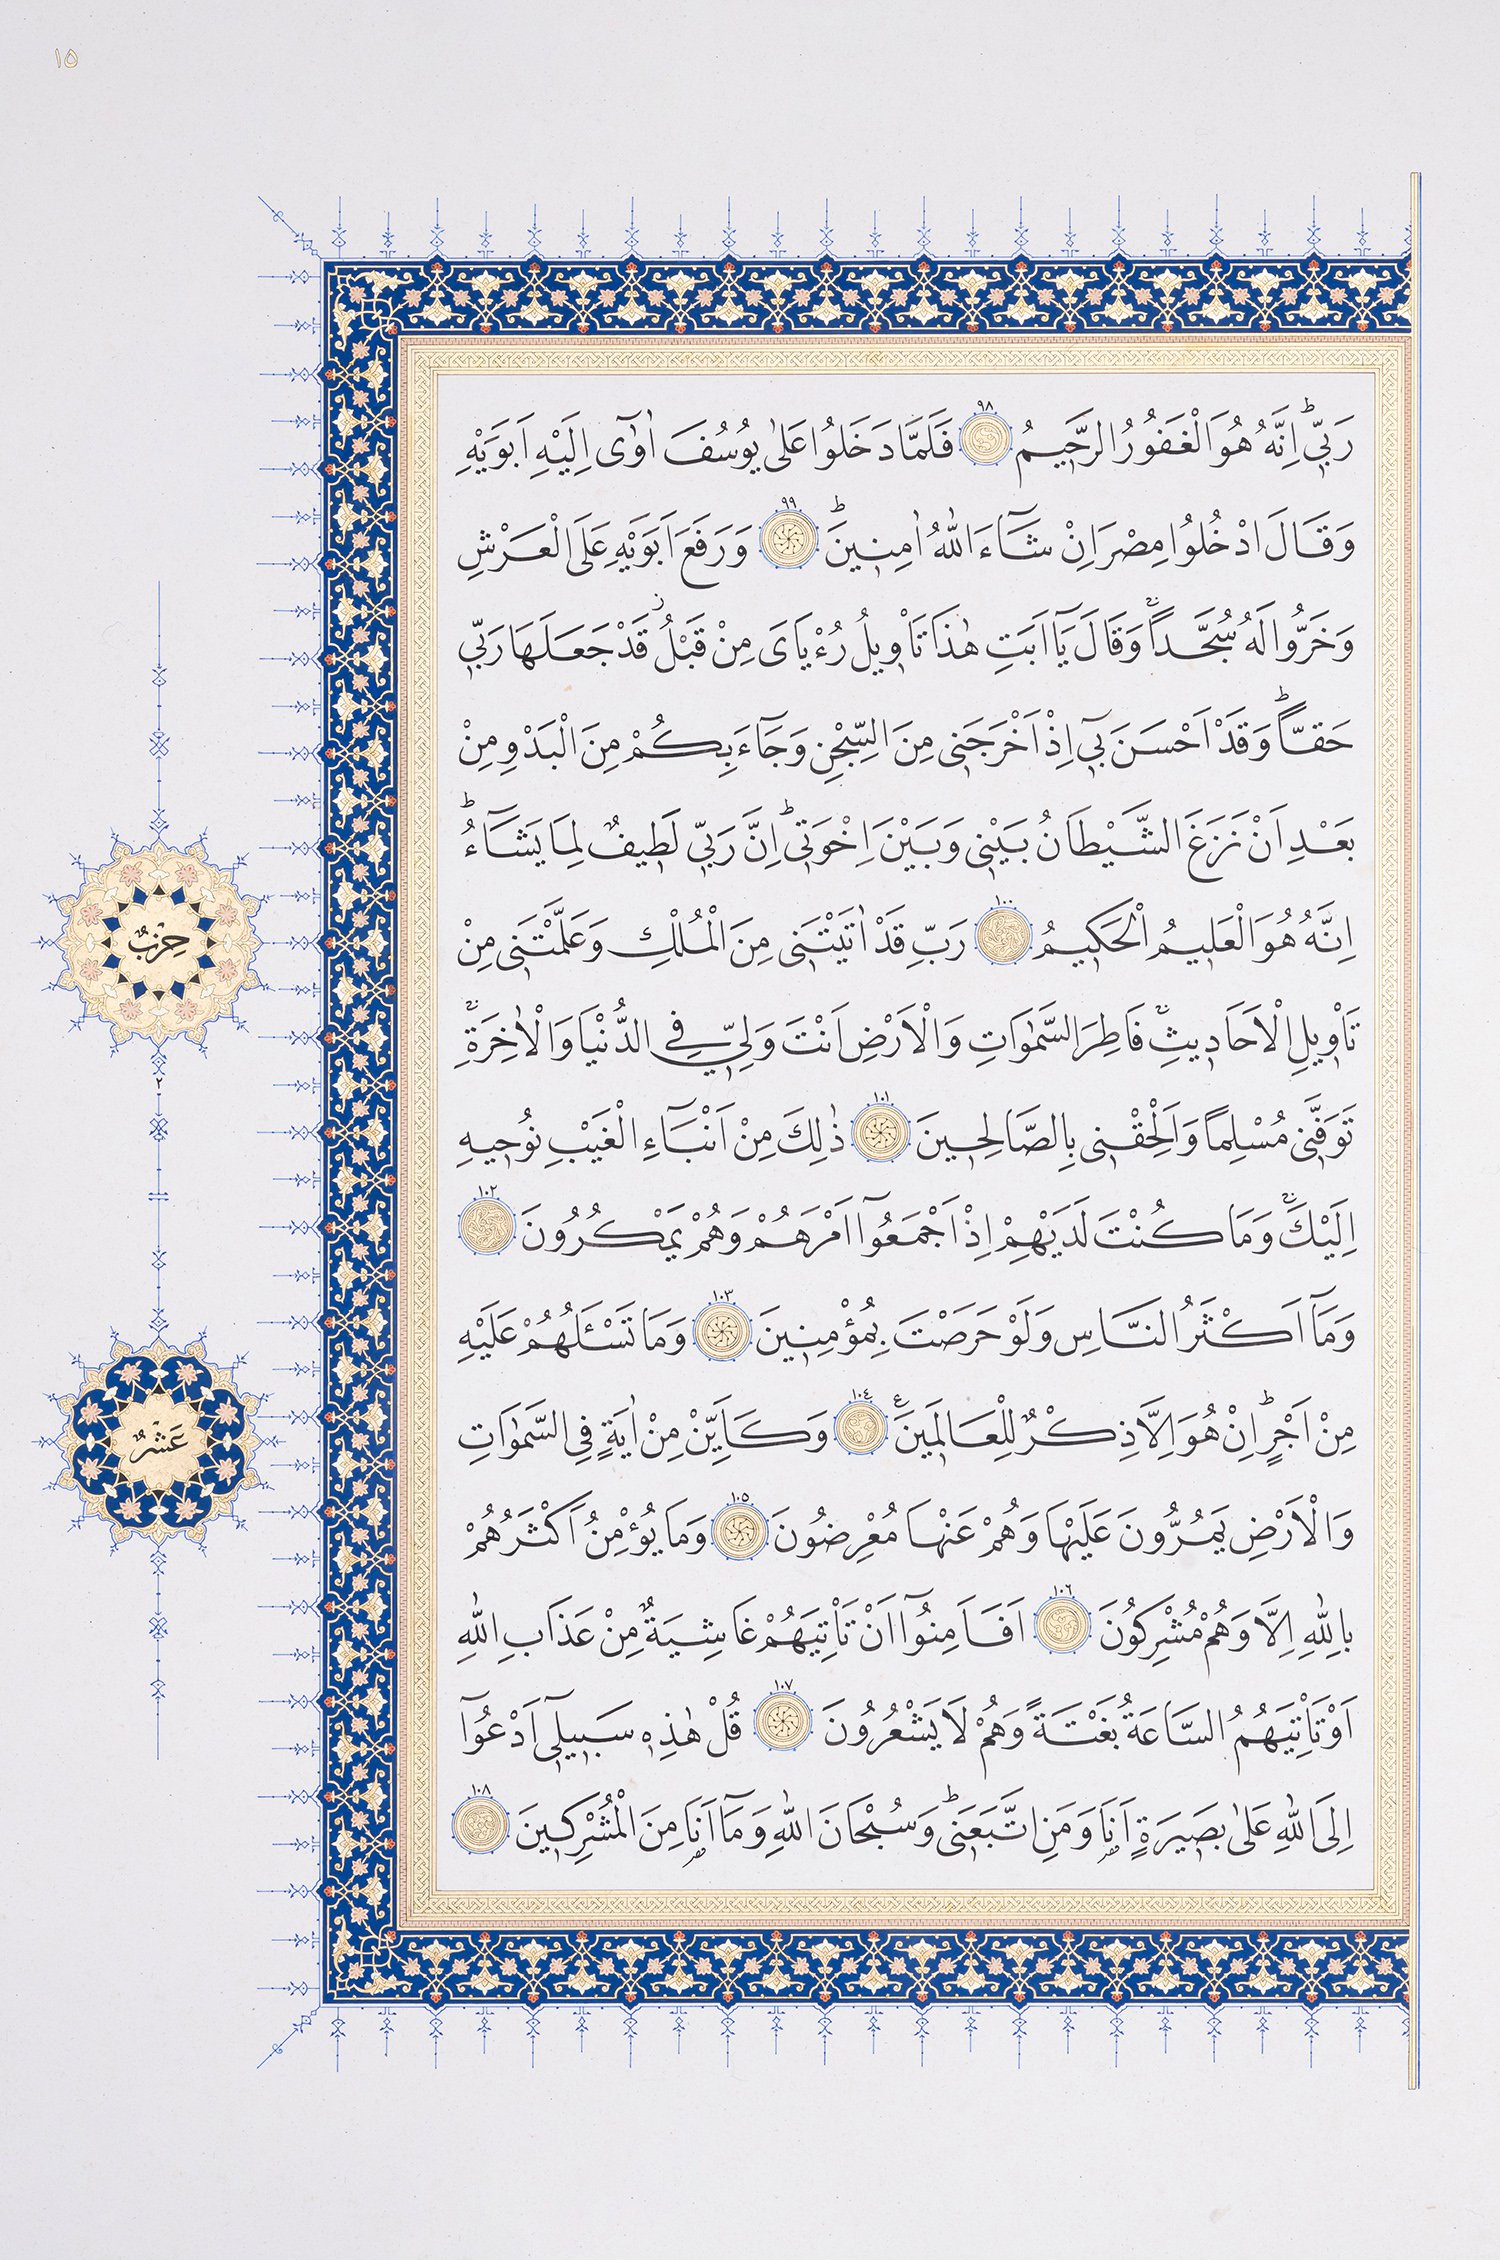 ١٥
رَبّ۪يۜ اِنَّهُ هُوَ الْغَفُورُ الرَّح۪يمُ ٩٨ فَلَمَّا دَخَلُوا عَلٰى يُوسُفَ اٰوٰٓى اِلَيْهِ اَبَوَيْهِ
وَقَالَ ادْخُلُوا مِصْرَ اِنْ شَٓاءَ اللّٰهُ اٰمِن۪ينَۜ ٩٩ وَرَفَعَ اَبَوَيْهِ عَلَى الْعَرْشِ
وَخَرُّوا لَهُ سُجَّداًۚ وَقَالَ يَٓا اَبَتِ هٰذَا تَأْو۪يلُ رُءْيَايَ مِنْ قَبْلُۘ قَدْ جَعَلَهَا رَبّ۪ي
حَقاًّۜ وَقَدْ اَحْسَنَ ب۪ٓي اِذْ اَخْرَجَن۪ي مِنَ السِّجْنِ وَجَٓاءَ بِكُمْ مِنَ الْبَدْوِ مِنْ
بَعْدِ اَنْ نَزَغَ الشَّيْطَانُ بَيْن۪ي وَبَيْنَ اِخْوَت۪يۜ اِنَّ رَبّ۪ي لَط۪يفٌ لِمَا يَشَٓاءُۜ
اِنَّهُ هُوَ الْعَل۪يمُ الْحَك۪يمُ ١٠٠ رَبِّ قَدْ اٰتَيْتَن۪ي مِنَ الْمُلْكِ وَعَلَّمْتَن۪ي مِنْ
تَأْو۪يلِ الْاَحَاد۪يثِۚ فَاطِرَ السَّمٰوَاتِ وَالْاَرْضِ اَنْتَ وَلِيّ۪ فِي الدُّنْيَا وَالْاٰخِرَةِۚ
تَوَفَّن۪ي مُسْلِماً وَاَلْحِقْن۪ي بِالصَّالِح۪ينَ ١٠١ ذٰلِكَ مِنْ اَنْبَٓاءِ الْغَيْبِ نُوح۪يهِ
اِلَيْكَۚ وَمَا كُنْتَ لَدَيْهِمْ اِذْ اَجْمَعُٓوا اَمْرَهُمْ وَهُمْ يَمْكُرُونَ ١٠٢
وَمَٓا اَكْثَرُ النَّاسِ وَلَوْ حَرَصْتَ بِمُؤْمِن۪ينَ ١٠٣ وَمَا تَسْـَٔلُهُمْ عَلَيْهِ
مِنْ اَجْرٍۜ اِنْ هُوَ اِلَّا ذِكْرٌ لِلْعَالَم۪ينَ۟ ١٠٤ وَكَاَيِّنْ مِنْ اٰيَةٍ فِي السَّمٰوَاتِ
وَالْاَرْضِ يَمُرُّونَ عَلَيْهَا وَهُمْ عَنْهَا مُعْرِضُونَ ١٠٥ وَمَا يُؤْمِنُ اَكْثَرُهُمْ
بِاللّٰهِ اِلَّا وَهُمْ مُشْرِكُونَ ١٠٦ اَفَاَمِنُٓوا اَنْ تَأْتِيَهُمْ غَاشِيَةٌ مِنْ عَذَابِ اللّٰهِ
اَوْ تَأْتِيَهُمُ السَّاعَةُ بَغْتَةً وَهُمْ لَا يَشْعُرُونَ ١٠٧ قُلْ هٰذِه۪ سَب۪يل۪ٓي اَدْعُٓوا
اِلَى اللّٰهِ عَلٰى بَص۪يرَةٍ اَنَا۬ وَمَنِ اتَّبَعَن۪يۜ وَسُبْحَانَ اللّٰهِ وَمَٓا اَنَا۬ مِنَ الْمُشْرِك۪ينَ ١٠٨
حِزْبٌ
٢
عَشْرٌ